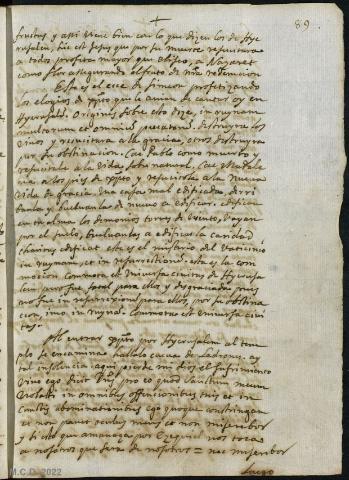 89.
fructus, y assi viene bien con lo que dizen los de Hye
rusalen, hic est Jesus que por su muerte resucitara
a todos, profeta mayor que eliseo, a Nazaret
como flor asegurando el fruto de nra redencion
Esta es el eco de simeon profetizando
los elogios de xpto que le avian de cantar oy en
Hyerusalen. Origenes sobre esto dize, in ruynam
multorum et omnium peccatorum. destruyra los
vicios y resucitara a la gracia, otros destruyra
por su obstinacion. Cae Pablo como muerto y
resucitale a la vida sobrenatural. Cae Madale
na a los pies de xpto y resucitola a la nueva
vida de gracia. Una casa mal edificada derri
banla y buelvenla de nuevo a edificar. edifica
en tu alma los demonios torres de viento, vayan
por el suelo, buelvanlas a edificar la caridad
charitas edificat esta es el misterio del Vaticinio
in ruynam et in resurrectionem. esta es la com
mocion. Commota est universa civitas de Hyerusa
len, pues fue total para ellos y desgraciada, pues
no fue in resurrectionem para ellos, por su obstina
cion, imo in ruyna. Commota est universa civi
tas.
Al entrar xpto por Hyerusalen al tem
plo se encamina hallolo cueva de Ladrones. ay
tal insolencia aqui pierde mi dios el sufrimiento
Vivo ego dicit Dns, pro eo quod sanctum meum
violasti in omnibus offensionibus tuis et in
cunctis abominationibus ego quoque confringam
et non parcet oculus meus et non miserebor
y si esto que amenaça por Ezequiel nos toca
a nosotros que sera de nosotros = nec miserebor
luego
M.C.D. 2022